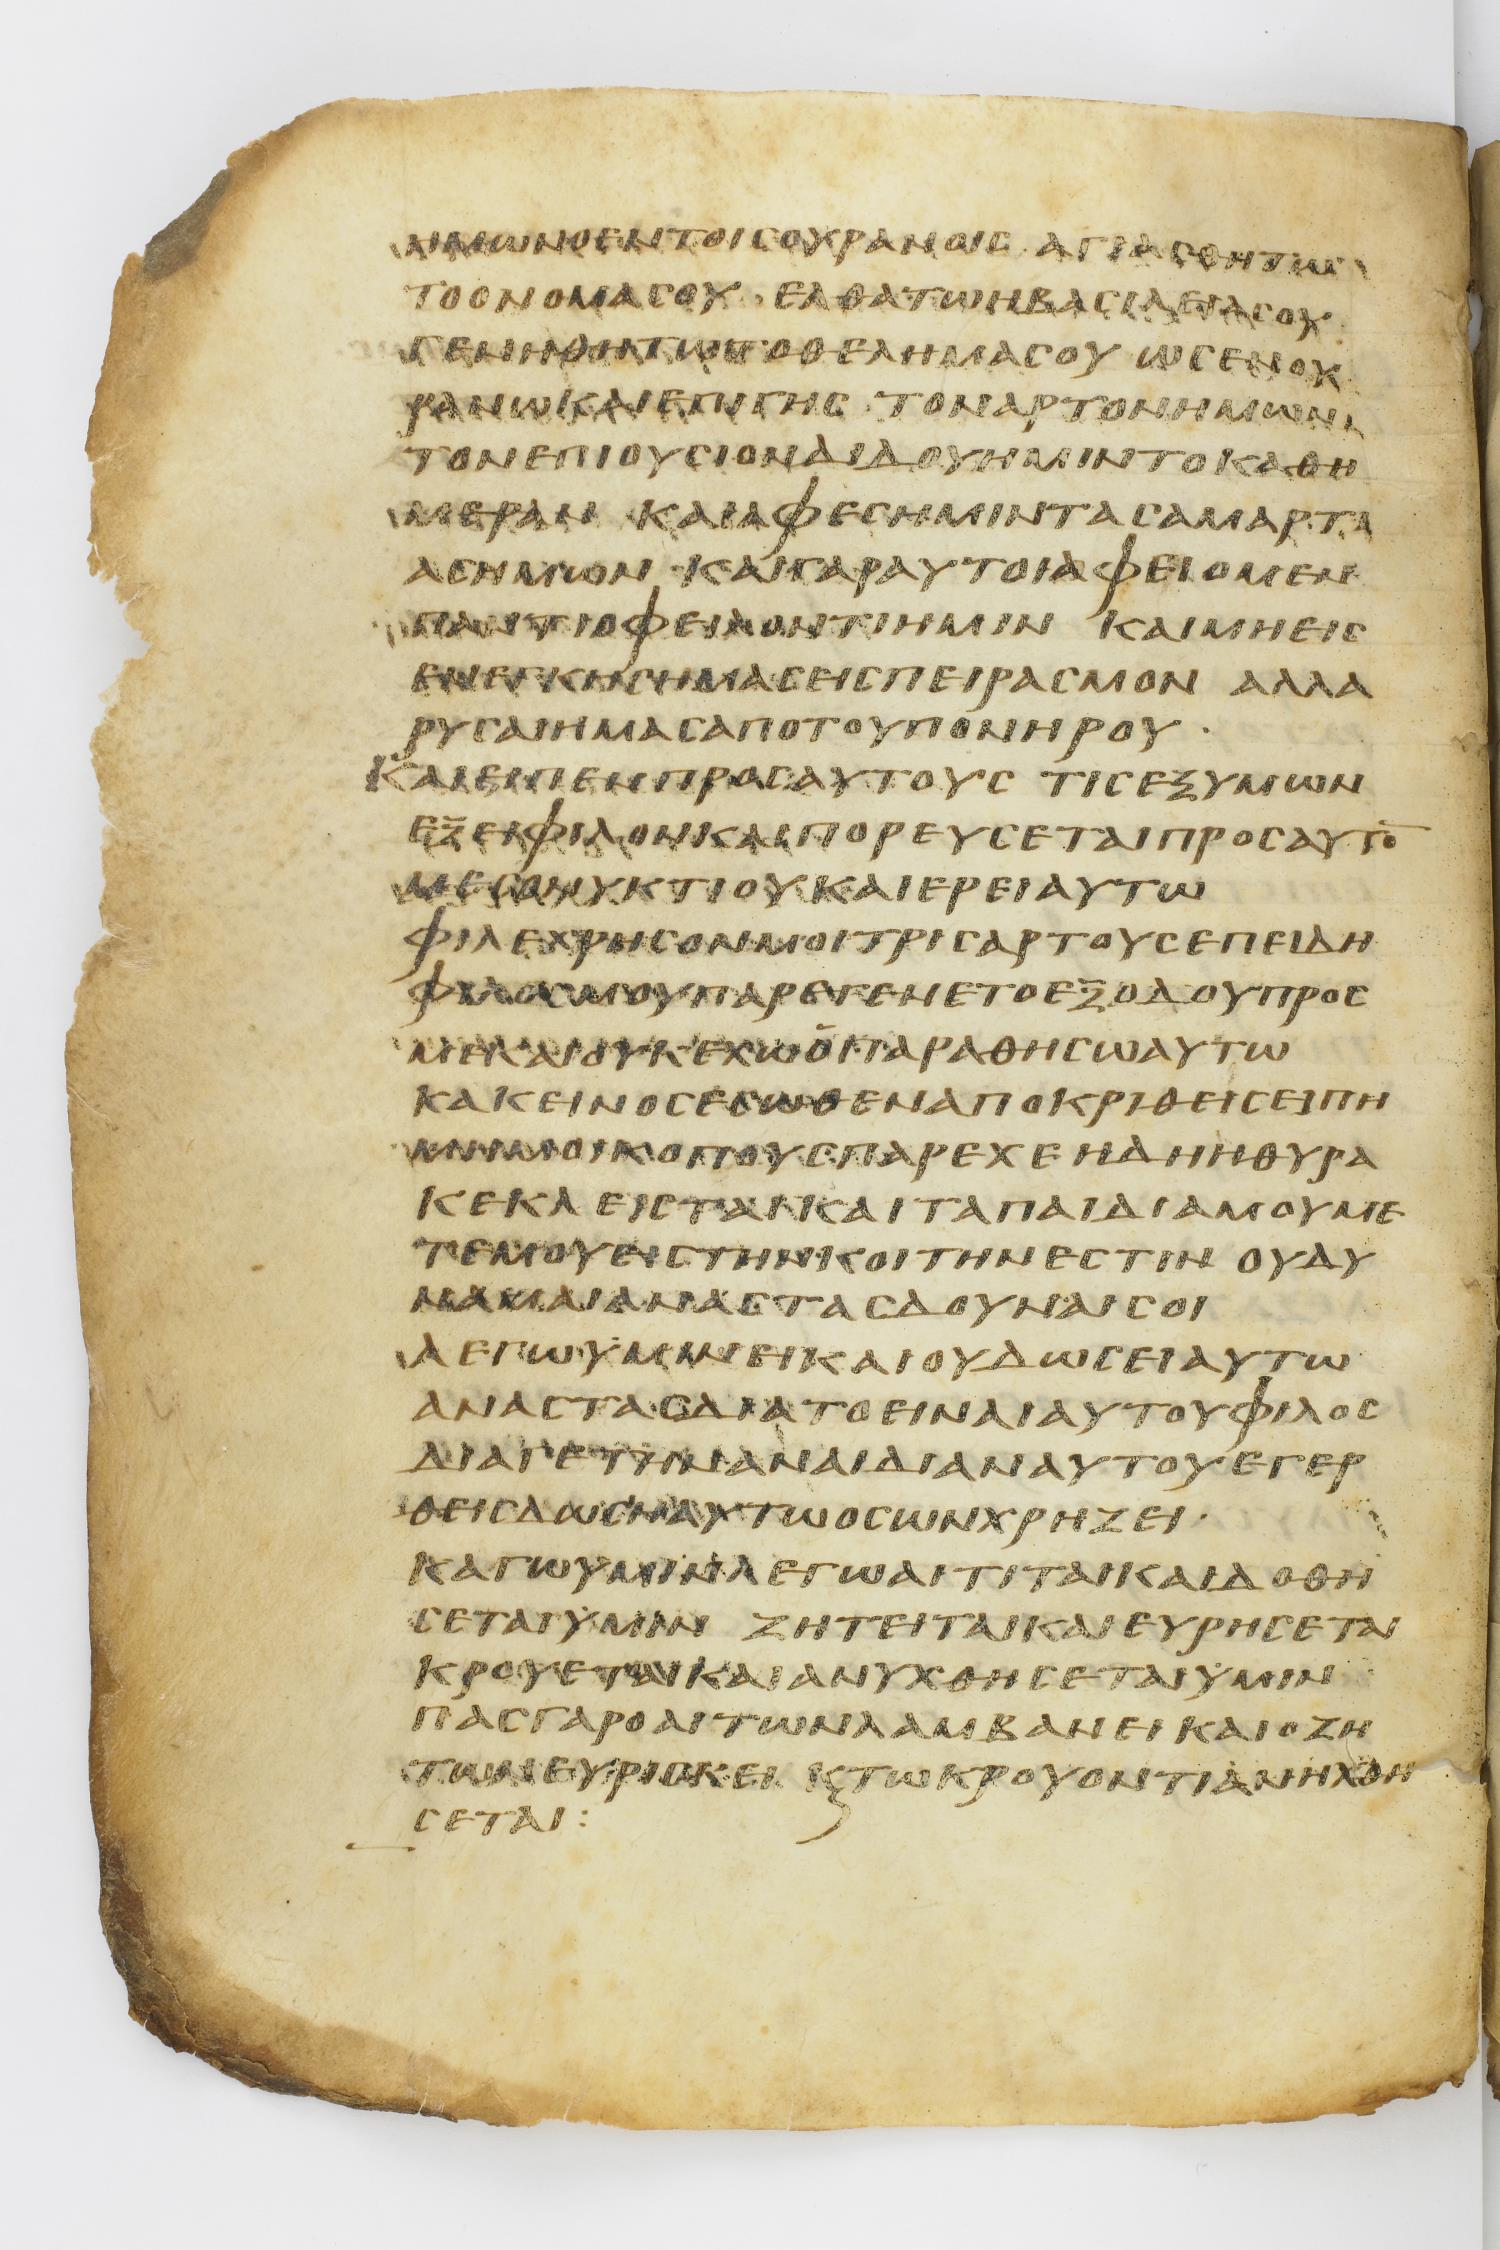 ημωνοεντοισουρανοισ αγιασθητω
τοονομασου ελθατωηβασιλειασου
γενηθητωτοθελημασου ωσενου
ρανωκαιεπιγησ τοναρτονημων
τονεπιουσιονδιδουημιντοκαθη
μεραν καιαφεσημιντασαμαρτι
ασημων καιγαραυτοιαφειομεν
παντιοφειλοντιημιν καιμηεισ
ενεγκησημασεισπειρασμον αλλα
ρυσαιημασαποτουπονηρου·
Καιειπενπροσαυτουσ τισεξυμων
εξειφιλονκαιπορευσεταιπροσαυτο̅
μεσονυκτιουκαιερειαυτω
φιλεχρησονμοιτρισαρτουσεπειδη
φιλοσμουπαρεγενετοεξοδουπροσ
μεκαιουκεχωοπαραθησωαυτω
κακεινοσεσωθεναποκριθεισειπη
μημοικοπουσπαρεχεηδηηθυρα
κεκλεισταικαιταπαιδιαμουμε
τεμουειστηνκοιτηνεστιν ουδυ
ναμαιαναστασδουναισοι
λεγωϋμινεικαιουδωσειαυτω
αναστασδιατοειναιαυτουφιλοσ
διαγετηναναιδιαναυτουεγερ
θεισδωσηαυτωοσωνχρηζει·
καγωϋμινλεγωαιτιταικαιδοθη
σεταιϋμιν ζητειταικαιευρησεται
κρουεταικαιανυχθησεταιϋμιν
πασγαροαιτωνλαμβανεικαιοζη
τωνευρισκει κτωκρουοντιανηχθη
σεται: